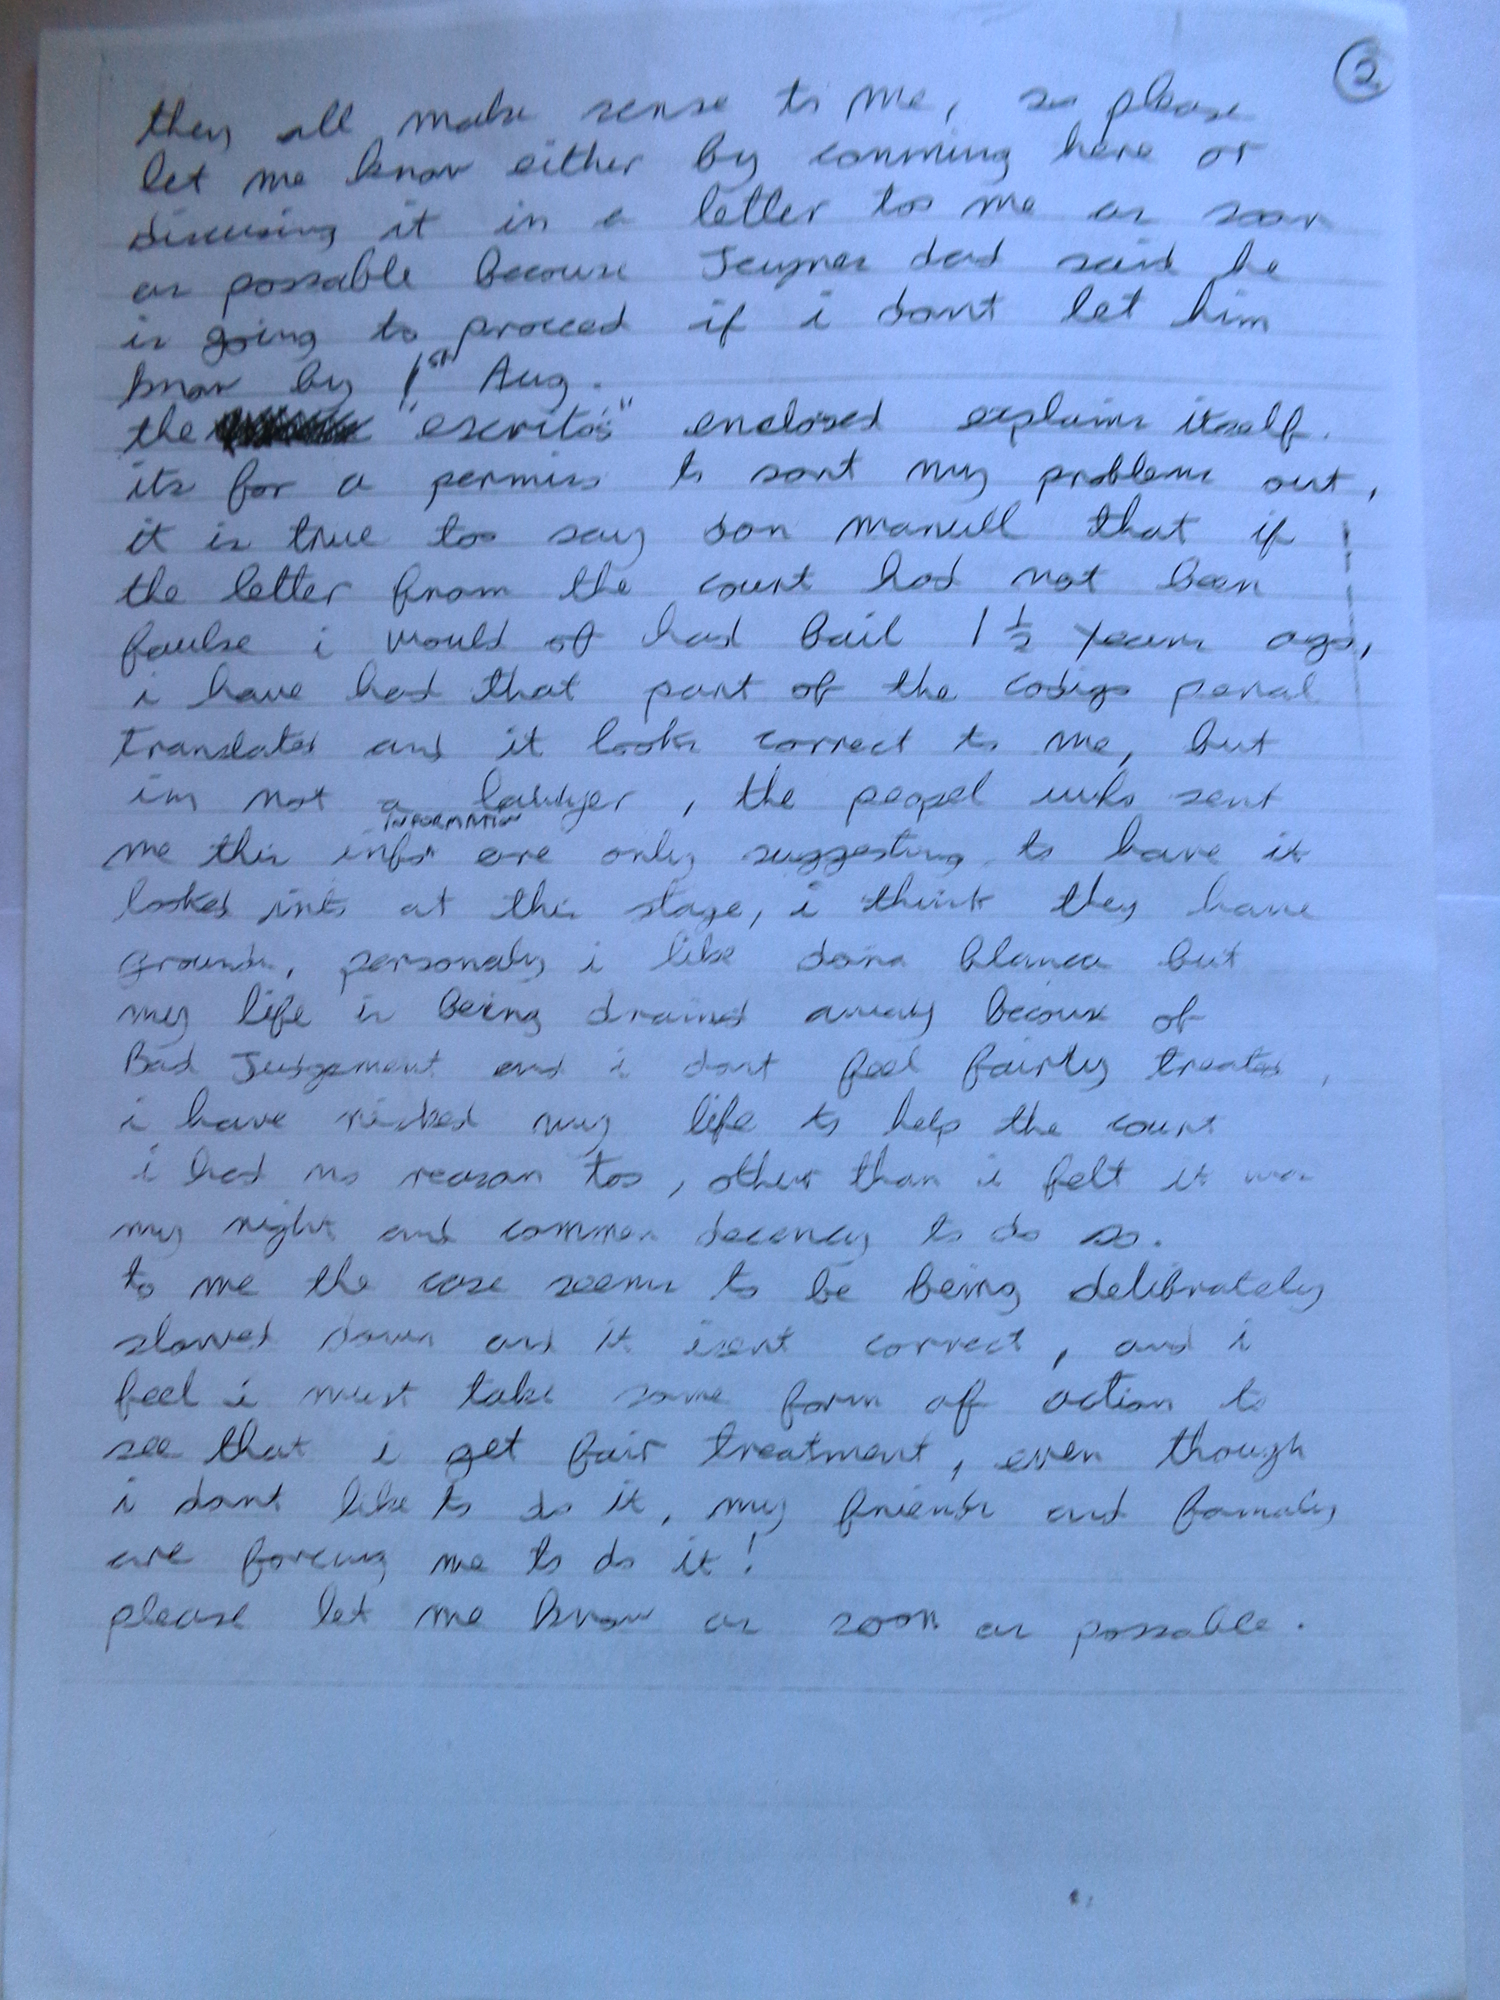 2
they all make sense to me, so please
let me know either by comming here or
discusing it in a letter too me as soon
as possable becouse dad said he
is going to proceed if i dont let him
know by 1st Aug.
the "escrito's" enclosed explains itself.
its for a permiss to sort my problems out,
it is true too say don manuell that if
the letter from the court had not been
faulse i would of had bail 1 1/2 years ago,
i have had that part of the codigo penal
translated and it looks correct to me, but
im not a lawyer, the peopel who sent
INFORMATION
me this info are only suggesting to have it
looked into at this stage, i think they have
grounds, personaly i like dona blanca but
my life is being drained away becouse of
Bad Judgement and i dont feel fairly treated,
i have risked my life to help the court
i had no reason too, other than i felt it was
my right and common decency to do so.
to me the case seems to be being delibrately
slowed down and it isent correct, and i
feel i must take some form off action to
see that i get fair treatment, even though
i dont like to do it, my friends and famaly
are forcing me to do it!
please let me know as soon as possable.